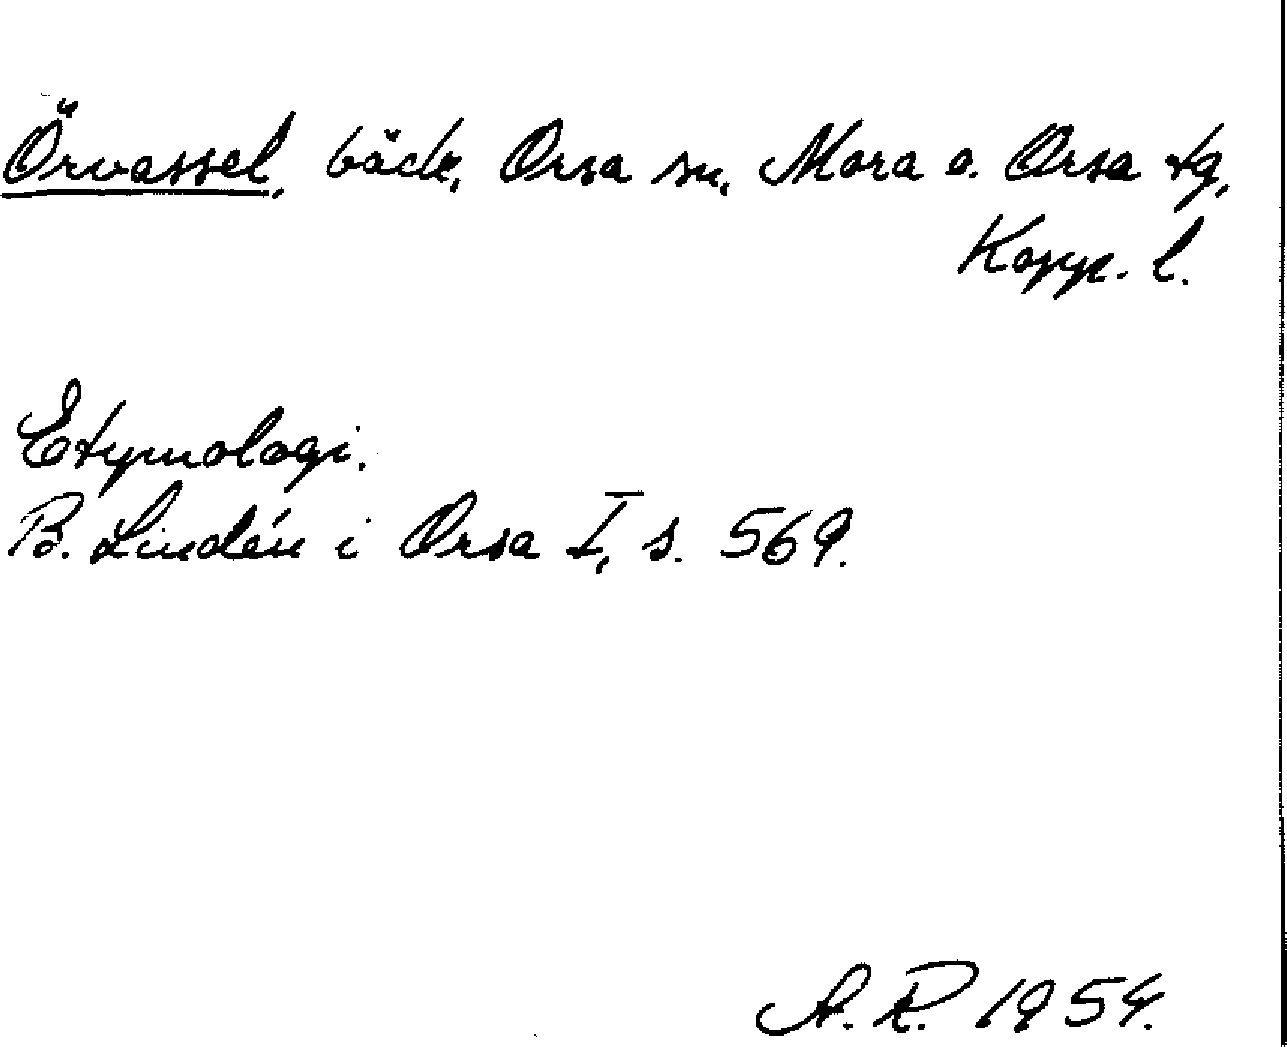 Örvassel, bäck, Orsa sn, Mora o. Orsa tg,
Kopp. l.
Etymologi.
B. Lindén i Orsa I, s. 569.
A. R. 1954.